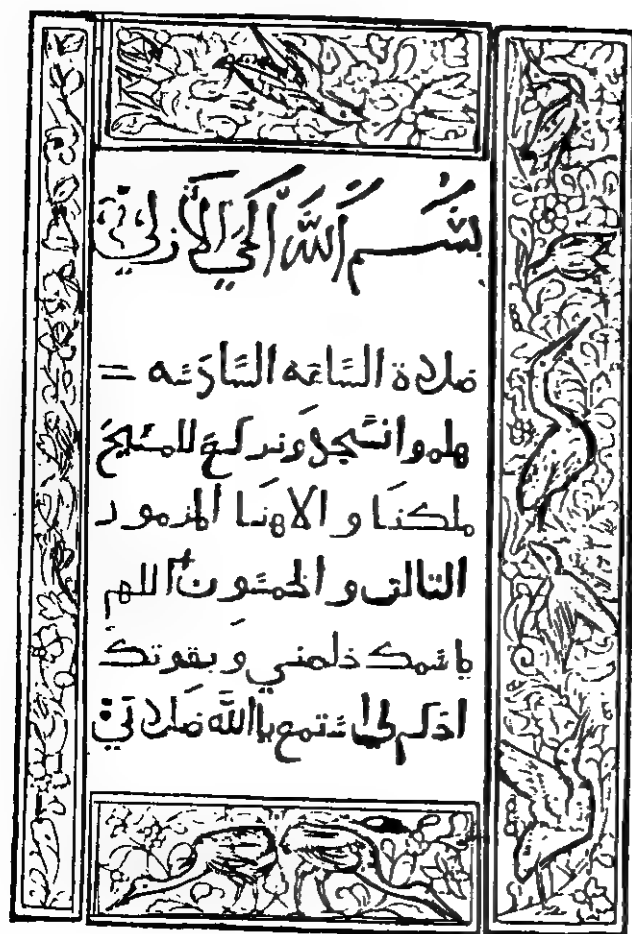 بسم الله الحي الازلي
صلاة الساعه السادسه =
هلموا نسجد ونركع للمسيح
ملكنا والاهنا المزمور
التالت والخمسون اللهم
باسمك خلصني وبقوتك
احكم لي استمع يا الله صلاتي